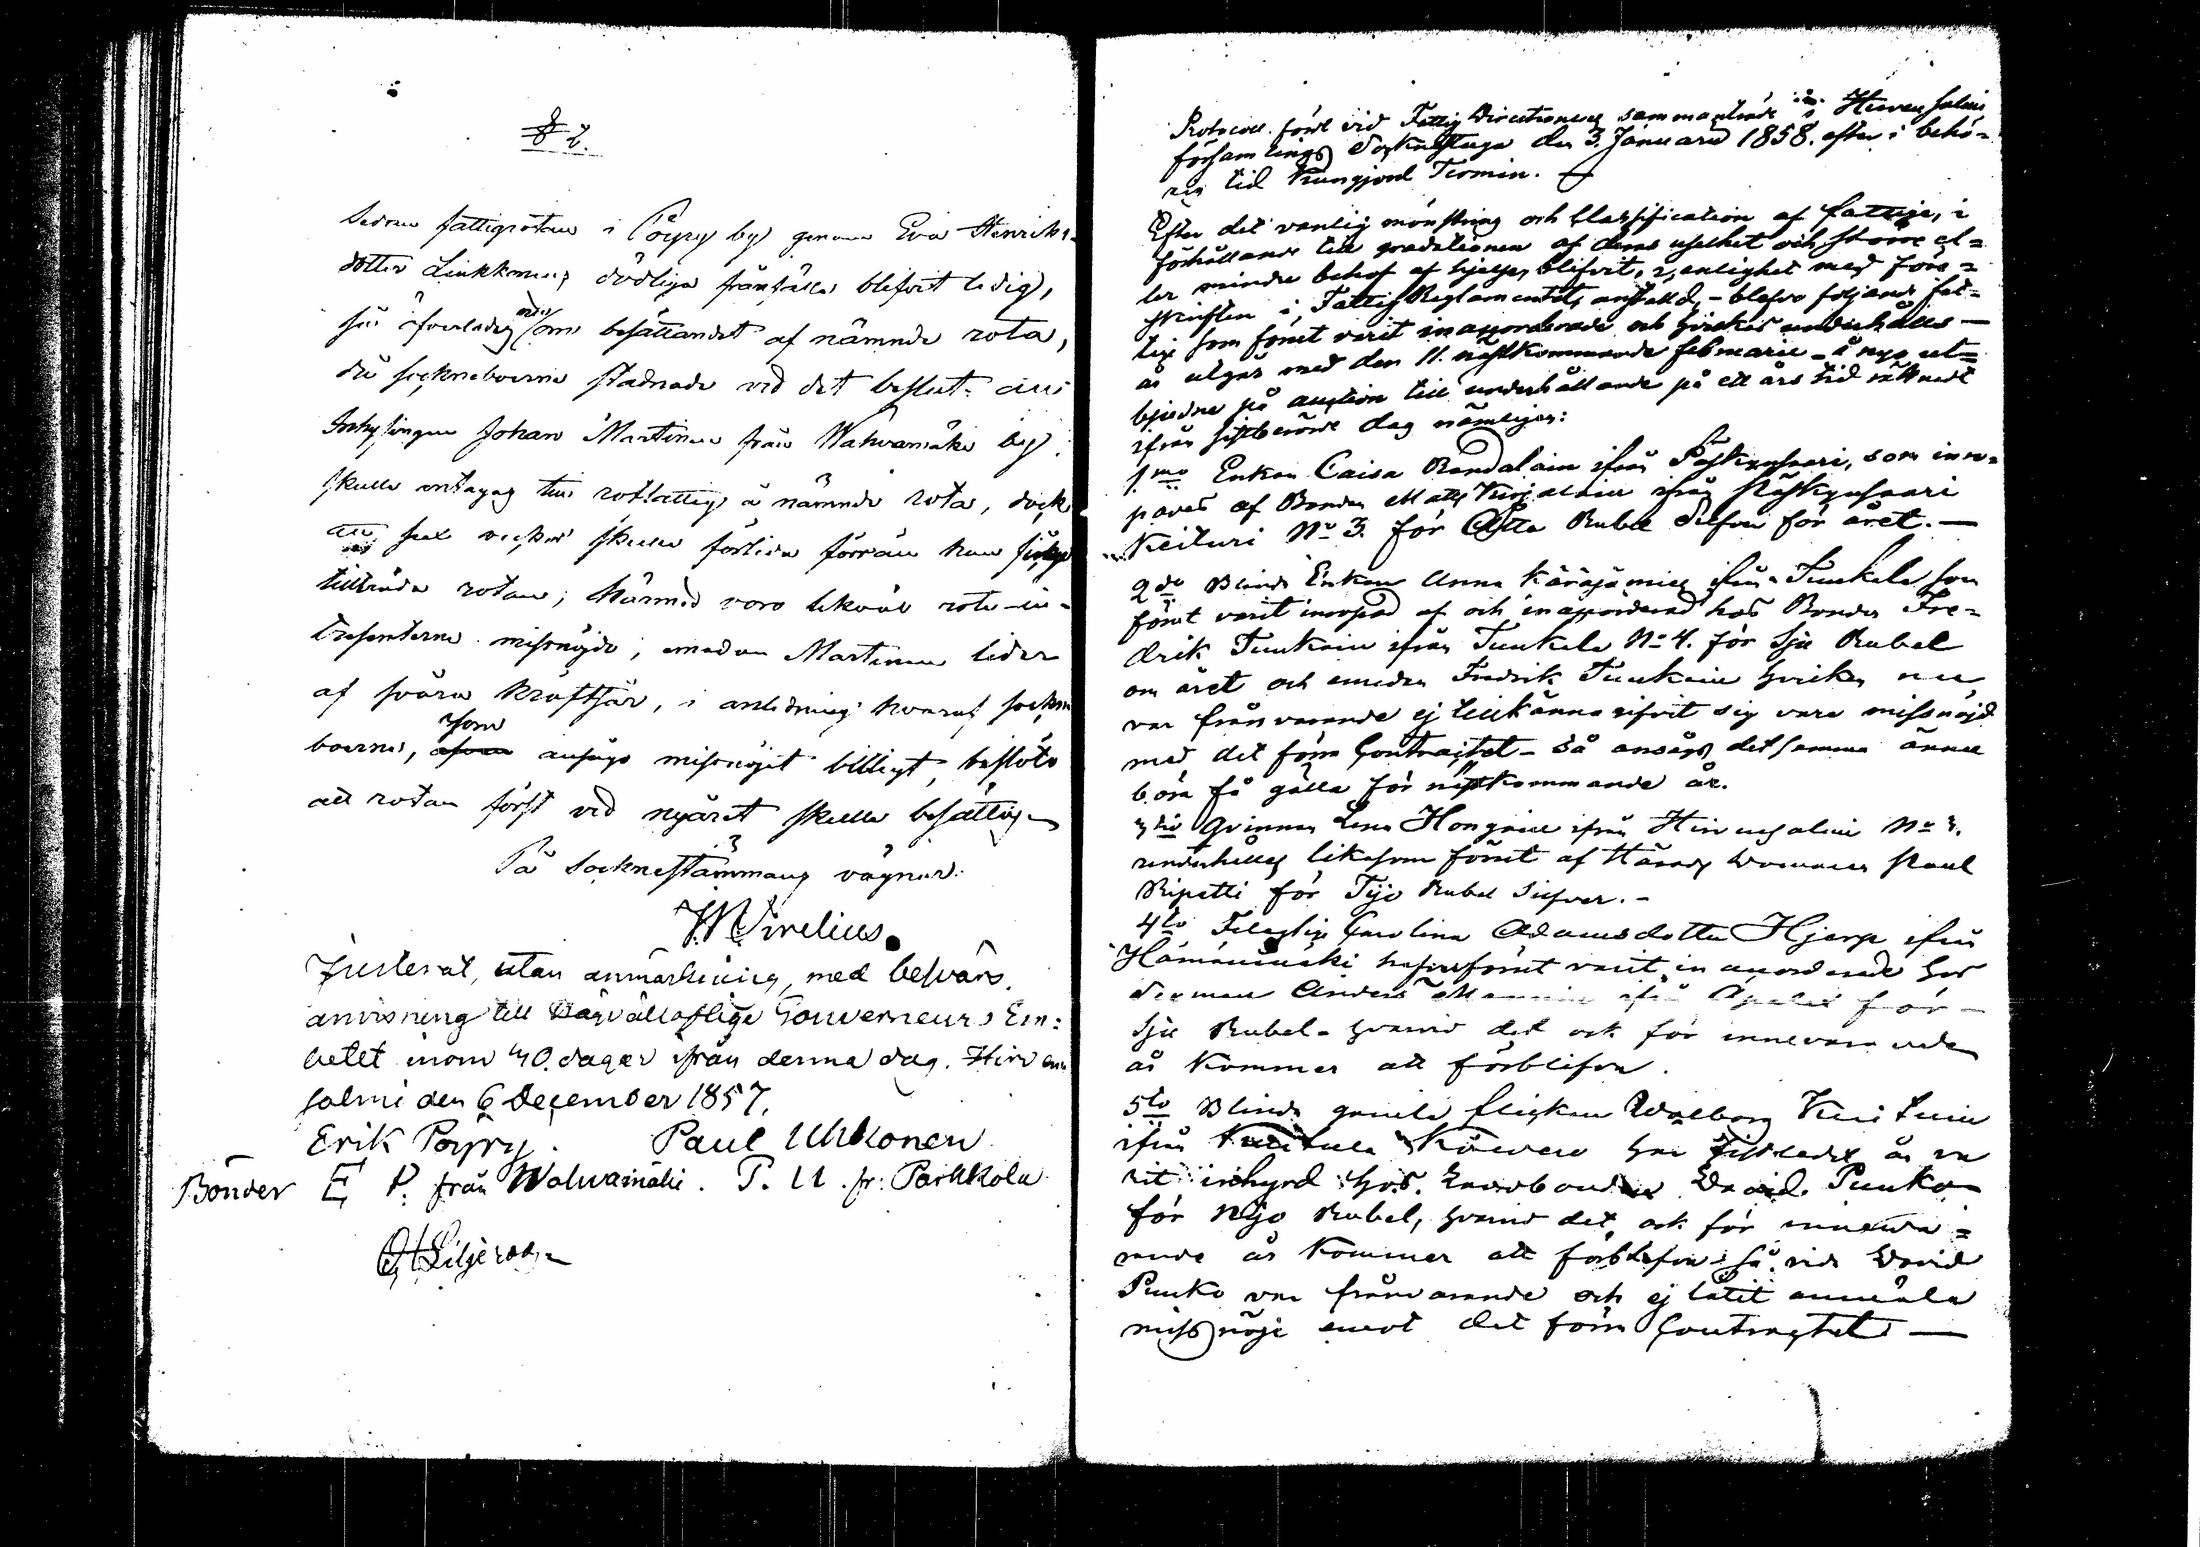 § 2.
Sedan fattigrotan i Pöyry by genom Eva Henriks-
dotter Linkkoinens dödliga frånfälle blifvit ledig,
så öfverlades om besättandet af nämnde rota,
då sockneboerne stadnade vid det beslut: att
Inhysingen Johan Martinen från Walvamäki by
skulle antagas till rotfattig å nämnde rota, dock
att sex veckor skulle förlida förrän han finge
tillträda rotan; härmed voro likväl rote-in-
tressenterne missnöjde, emedan Martinen lider
af svåra kräftsår, i anledning hvaraf sockne
boerne, som ansågo missnöjet billigt, beslöto
att rotan först vid nyåret skulle besättas
På Socknestämmans vägnar:
Wirelius
Justerat, utan anmärkning, med besvärs
anvisning till Högvällofliga Gouverneurs Em-
betet inom 30 dagar ifrån denna dag. Hirven
salmi den 6 December 1857.
Erik Pöyry. Paul Ukkonen
Bönder E P. från Walvamäki. P. U. fr: Parkkola
Protocoll fördt vid Fattig Directionens sammanträde i Hirvensalmi
församlings Sockenstuga den 3. Januarii 1858. efter i behö-
rig tid kungjord Termin. —
Efter det vanlig mönstring och Classification af fattige, i
förhållande till gradationen af deras uselhet och större el-
ler mindre behof af hjelp, blifvit, i enlighet med före-
skriften i Fattig Reglementet, anställd, - blefvo följande fat-
tige som förut varit inaccorderade och hvilkas underhålls—
år utgår med den 11. nästkommande februarii - å nyo ut-
bjudne på auction till underhållande på ett års tid räknadt
ifrån sistberörde dag nämligen:
1mo Enkan Caisa Randalain ifrån Pöskynsaari, som inro-
pades af Bonden Matts Kurjalain ifrån Pöskynsaari
Keituri No 3. för Åtta Rubel Silfver för året. —
2do Blinda Enkan Anna Käräjämies ifrån Tuukala som
förut varit inropad af och inaccorderad hos Bonden Fre-
drik Tuukain ifrån Tuukala No 4. för Sju Rubel
om året och emedan Fredrik Tuukain hvilken nu
var frånvarande ej tillkännagifvit sig vara missnöjd
med det förra Contractet - så ansågs detsamma ännu
böra få gälla för nästkommande år.
3tio Qvinnan Lena Hongain ifrån Hirvensalmi No 3.
underhålles likasom förut af Härads Domaren Paul
Ripatti för Tijo Rubel Silfver. -
4to Carolina Adamsdotter Hjerp ifrån
Hämäänmäki hvilken förut varit inaccorderad hos
Anders ifrån för —
Sju Rubel - hvarvid det ock för innevarande
år kommer att förblifva.
5to Blinda gamla flickan Walborg Kuitunin
ifrån Kuitula har sistledet år va
rit inhyrd hos David Puuko
för Nijo Rubel, hvarvid det ock för inneva-
rande år kommer att förblifva, så vida David
Puuko var frånvarande och ej låtit anmäla
missnöje emot det förra Contractet —